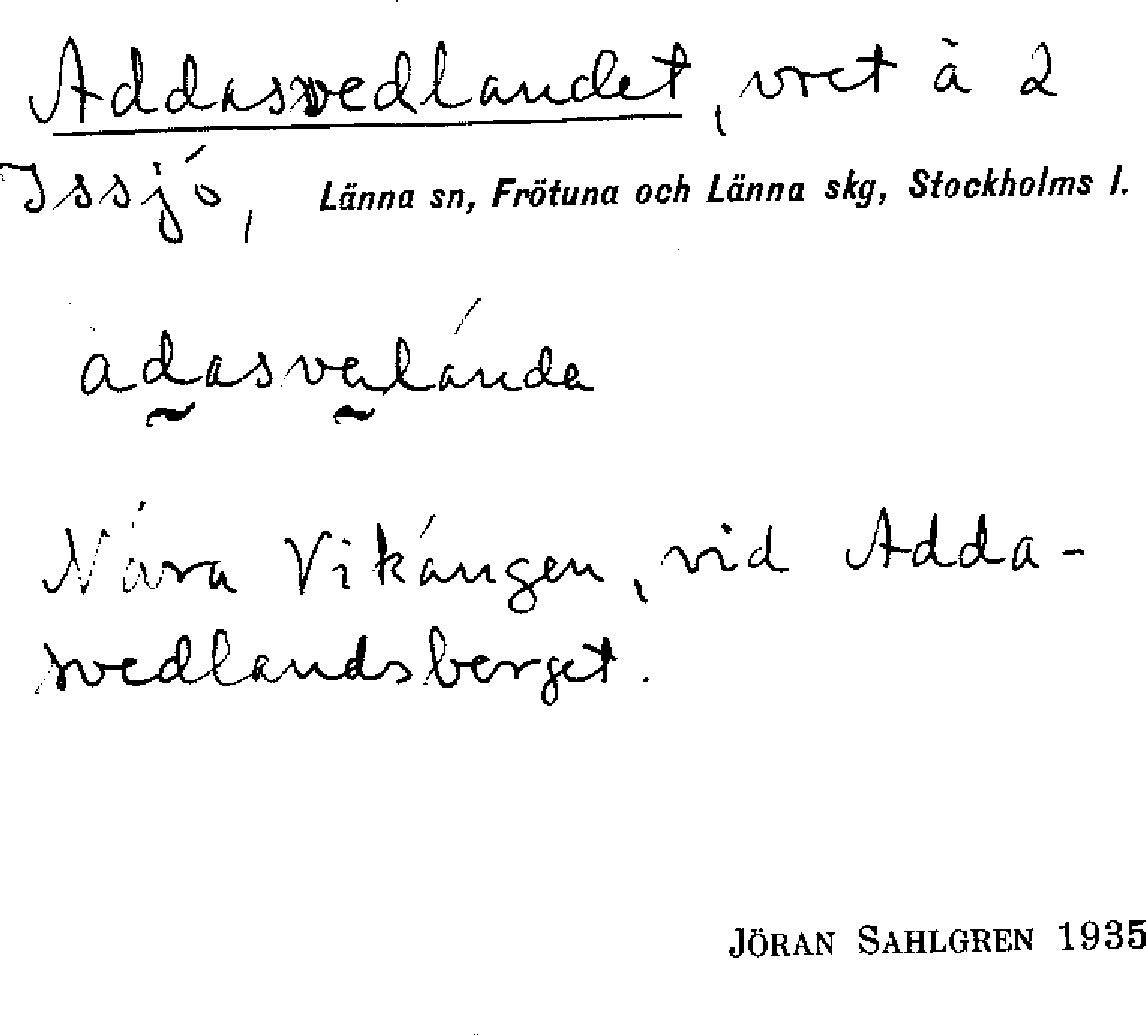 Addasvedlandet, vret å 2
Issjö, Länna sn, Frötuna och Länna skg, Stockholms l.
adasvelánda
Nära Vikängen, vid Adda-
svedlandsberget.
JÖRAN SAHLGREN 1935